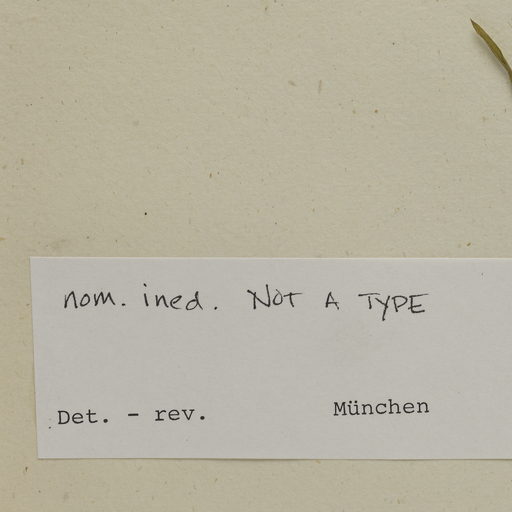 nom. ined. NOT A TYPE
Det. - rev. München